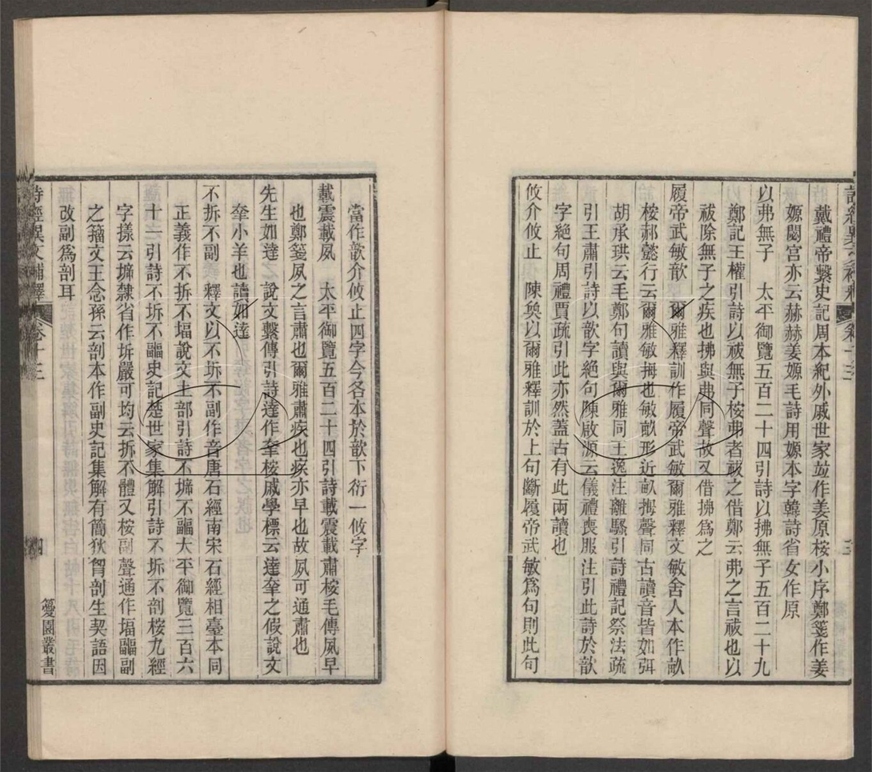 詩經異文補釋 卷十三
戴禮帝繫史記周本紀外戚世家竝作姜原桉小序鄭箋作姜
嫄閟宮亦云赫赫姜嫄毛詩用嫄本字韓詩省女作原
以弗無子　太平御覽五百二十四引詩以拂無子五百二十九
鄭記王權引詩以祓無子桉弗者祓之借鄭云弗之言祓也以
祓除無子之疾也拂與弗同聲故又借拂爲之
履帝武敏歆　爾雅釋訓作履帝武敏爾雅釋文敏舍人本作畝
桉郝懿行云爾雅敏拇也敏畝形近畝拇聲同古讀音皆如弭
胡承珙云毛鄭句讀與爾雅同王逸注離騷引詩禮記祭法疏
引王肅引詩以歆字絕句陳啟源云儀禮喪服注引此詩於歆
字絕句周禮賈疏引此亦然蓋古有此兩讀也
攸介攸止　陳奐以爾雅釋訓於上句斷履帝武敏爲句則此句
當作歆介攸止四字今各本於歆下衍一攸字
載震載夙　太平御覽五百二十四引詩載震載肅桉毛傳夙早
也鄭箋夙之言肅也爾雅肅疾也疾亦早也故夙可通肅也
先生如達　說文繫傳引詩達作羍桉戚學標云達羍之假說文
羍小羊也讀如達
不拆不副　釋文以不坼不副作音唐石經南宋石經相臺本同
正義作不拆不堛說文土部引詩不㙤不疈太平御覽三百六
十一引詩不坼不疈史記楚世家集解引詩不坼不剖桉九經
字樣云㙤隸省作坼嚴可均云拆不體又桉副聲通作堛疈副
之籀文王念孫云剖本作副史記集解有簡狄胷剖生契語因
改副爲剖耳
詩經異文補釋 卷十三
篴園叢書